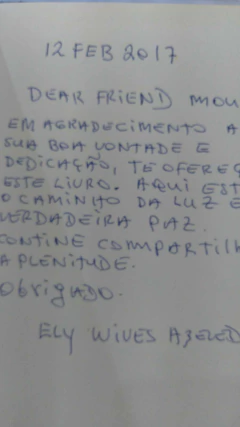 12 FEB 2017
DEAR FRIEND MOU
EM AGRADECIMENTO A
SUA BOA VONTADE E
DEDICAÇÃO, TE OFEREÇ
ESTE LIVRO. AQUI EST
O CAMINHO DA LUZ E
VERDADEIRA PAZ.
CONTINE COMPARTILH
A PLENITUDE.
OBRIGADO.
ELY WIVES AZELED